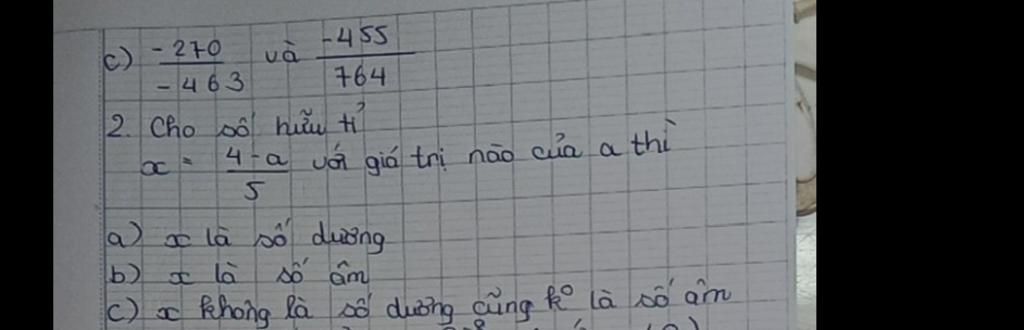 c) -270/-463 và -455/764
2. Cho số hữu tỉ
x = 4-a/5 với giá trị nào của a thì
a) x là số dương
b) x là số âm
c) x không là số dương cũng k° là số âm